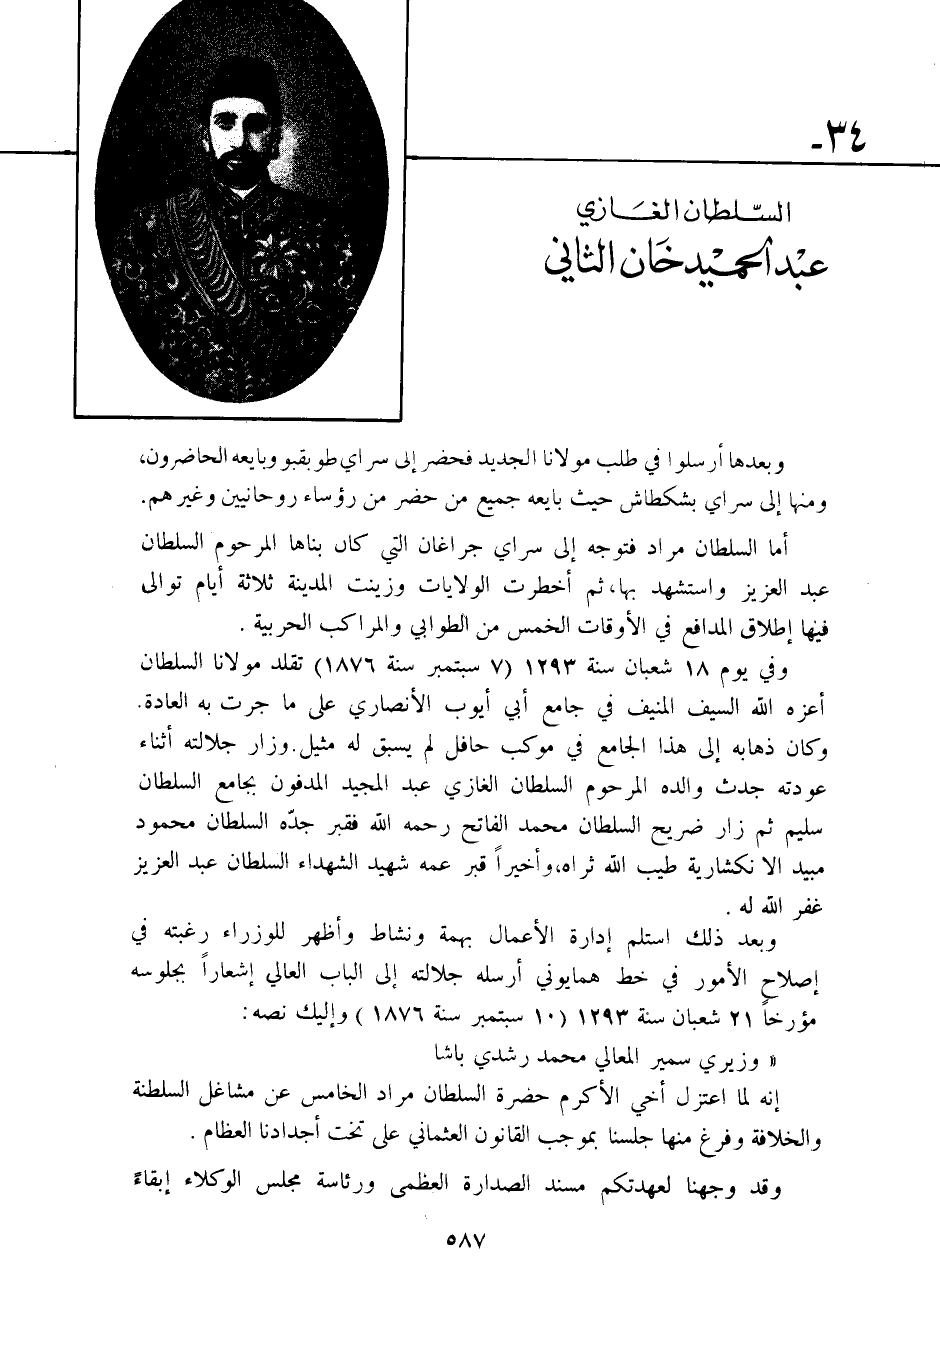 ٣٤-
السّلطان الغَازي
عبْد الحميْد خَان الثاني
وبعدها أرسلوا في طلب مولانا الجديد فحضر إلى سراي طوبقبو وبايعه الحاضرون،
ومنها إلى سراي بشكطاش حيث بايعه جميع من حضر من رؤساء روحانيين وغيرهم.
أما السلطان مراد فتوجه إلى سراي جراغان التي كان بناها المرحوم السلطان
عبد العزيز واستشهد بها، ثم أخطرت الولايات وزينت المدينة ثلاثة أيام توالى
فيها إطلاق المدافع في الأوقات الخمس من الطوابي والمراكب الحربية .
وفي يوم ١٨ شعبان سنة ١٢٩٣ (٧ سبتمبر سنة ١٨٧٦) تقلد مولانا السلطان
أعزه الله السيف المنيف في جامع أبي أيوب الأنصاري على ما جرت به العادة.
وكان ذهابه إلى هذا الجامع في موكب حافل لم يسبق له مثيل. وزار جلالته أثناء
عودته جدث والده المرحوم السلطان الغازي عبد المجيد المدفون بجامع السلطان
سليم ثم زار ضريح السلطان محمد الفاتح رحمه الله فقبر جدّه السلطان محمود
مبيد الانكشارية طيب الله ثراه، وأخيراً قبر عمه شهيد الشهداء السلطان عبد العزيز
غفر الله له .
وبعد ذلك استلم إدارة الأعمال بهمة ونشاط وأظهر للوزراء رغبته في
إصلاح الأمور في خط همايوني أرسله جلالته إلى الباب العالي إشعاراً بجلوسه
مؤرخاً ٢١ شعبان سنة ١٢٩٣ (١٠ سبتمبر سنة ١٨٧٦ ) وإليك نصه:
« وزيري سمير المعالي محمد رشدي باشا
إنه لما اعتزل أخي الأكرم حضرة السلطان مراد الخامس عن مشاغل السلطنة
والخلافة وفرغ منها جلسنا بموجب القانون العثماني على تخت أجدادنا العظام .
وقد وجهنا لعهدتكم مسند الصدارة العظمى ورئاسة مجلس الوكلاء إبقاءً
٥٨٧